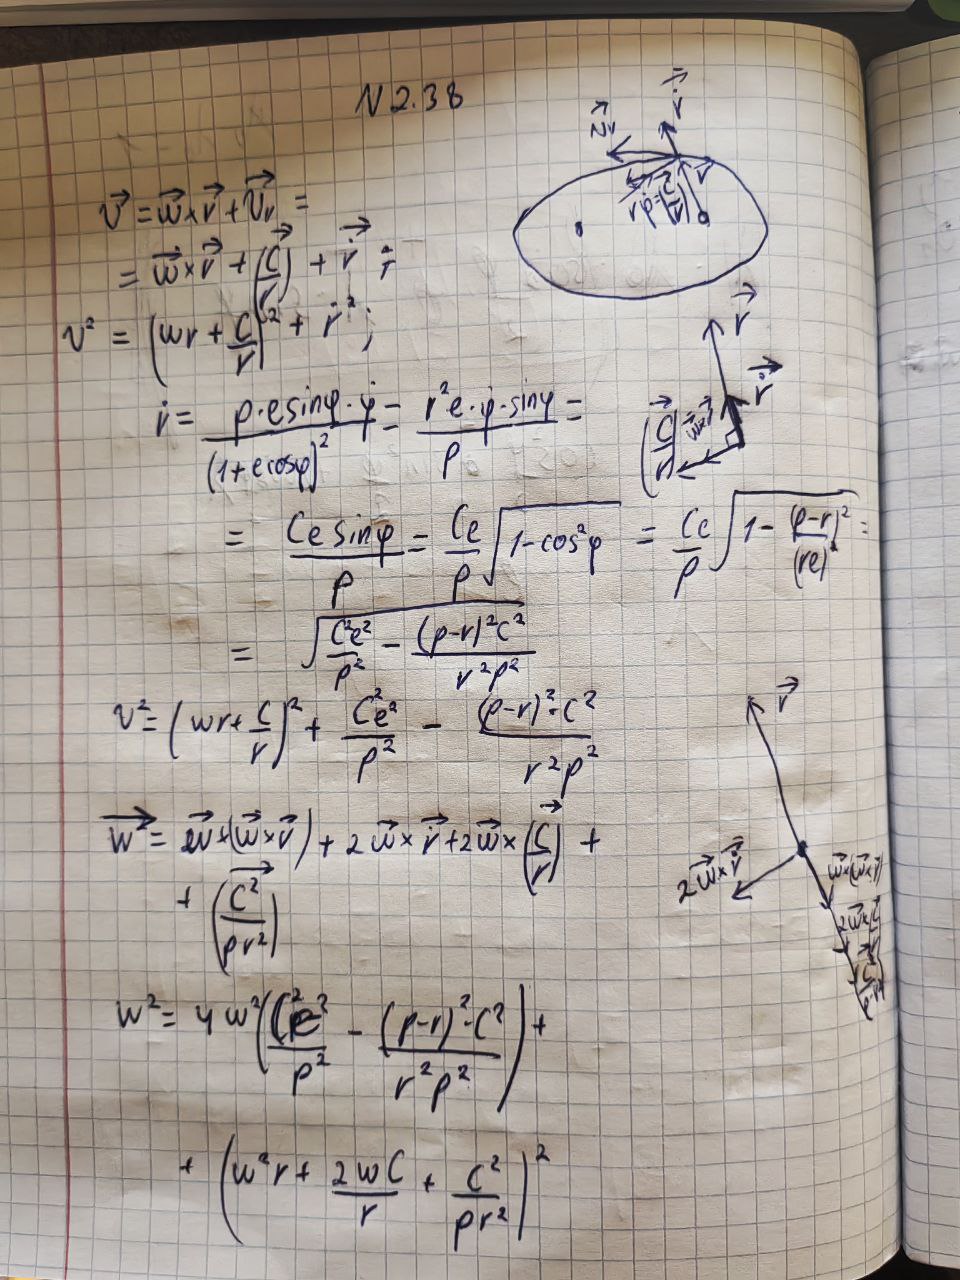 N 2.38
v⃗ = w⃗ × r⃗ + v⃗r =
= w⃗ × r⃗ + (C/r)⃗ + ṙ⃗ ;
v² = (wr + C/r)² + ṙ² ;
ṙ = p·e sinφ·φ̇ / (1+e cosφ)² = r²e·φ̇·sinφ / p =
= Ce sinφ / p = Ce/p √(1-cos²φ) = Ce/p √(1 - (p-r)²/(re)²) =
= √(C²e²/p² - (p-r)²C²/r²p²)
v² = (wr + C/r)² + C²e²/p² - (p-r)²·C²/r²p²
w⃗² = w⃗×(w⃗×r⃗) + 2w⃗×ṙ⃗ + 2w⃗×(C/r)⃗ +
+ (C²/pr²)⃗
w² = 4w²(C²e²/p² - (p-r)²·C²/r²p²) +
+ (w²r + 2wC/r + C²/pr²)²
v⃗r
ṙ⃗
r⃗
rφ̇ = (C/r)
r⃗
ṙ⃗
(C/r)⃗
w⃗×r⃗
r⃗
2w⃗×ṙ⃗
w⃗×(w⃗×r⃗)